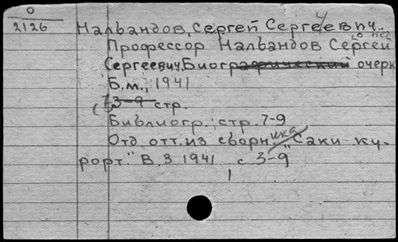 0
2126
Налбандов, Сергей Сергеевич.
о нем
Профессор Налбандов Сергей
Сергеевич Биографический очерк
Б.м., 1941
3-9 стр.
Библиогр.: стр. 7-9
Отд. отт. из сборника "Саки ку-
рорт." В. 3 1941 с. 3-9